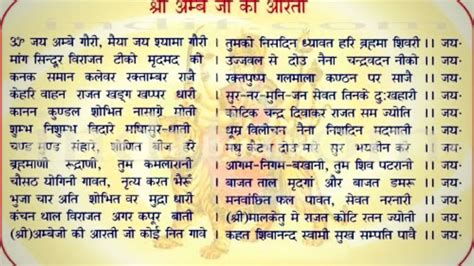 श्री अम्बे जी की आरती
ॐ जय अम्बे गौरी, मैया जय श्यामा गौरी । तुमको निसदिन ध्यावत हरि ब्रहमा शिवरी ।। जय-
मांग सिन्दूर विराजत टीको मृदमद को । उज्जवल से दोउ नैना चन्द्रवदन नीको ।। जय-
कनक समान कलेवर रक्ताम्बर राजै । रक्तपुष्प गलमाला कण्ठन पर साजै ।। जय-
केहरि वाहन राजत खड्ग खप्पर धारी । सुर-नर-मुनि-जन सेवत तिनके दुःखहारी ।। जय-
कानन कुण्डल शोभित नासाग्रे मोती । कोटिक चन्द्र दिवाकर राजत सम ज्योति ।। जय-
शुम्भ निशुम्भ विदारे महिषासुर-धाती । धूम्र विलोचन नैना निशदिन मदमाती ।। जय-
चण्ड मुण्ड संहारे, शोणित बीज हरे । मधु कैटभ दोउ मारे सुर भयहीन करे ।। जय-
ब्रहमाणी रूद्राणी, तुम कमलारानी । आगम-निगम-बखानी, तुम शिव पटरानी ।। जय-
चौसठ योगिनी गावत, नृत्य करत भैरूँ । बाजत ताल मृदंगा और बाजत डमरू ।। जय-
भुजा चार अति शोभित वर मुद्रा धारी । मनवांछित फल पावत, सेवत नरनारी ।। जय-
कंचन थाल विराजत अगर कपूर बाती । (श्री)मालकेतु में राजत कोटि रतन ज्योती ।। जय-
(श्री)अम्बेजी की आरती जो कोई नित गावे । कहत शिवानन्द स्वामी सुख सम्पति पावे ।। जय-